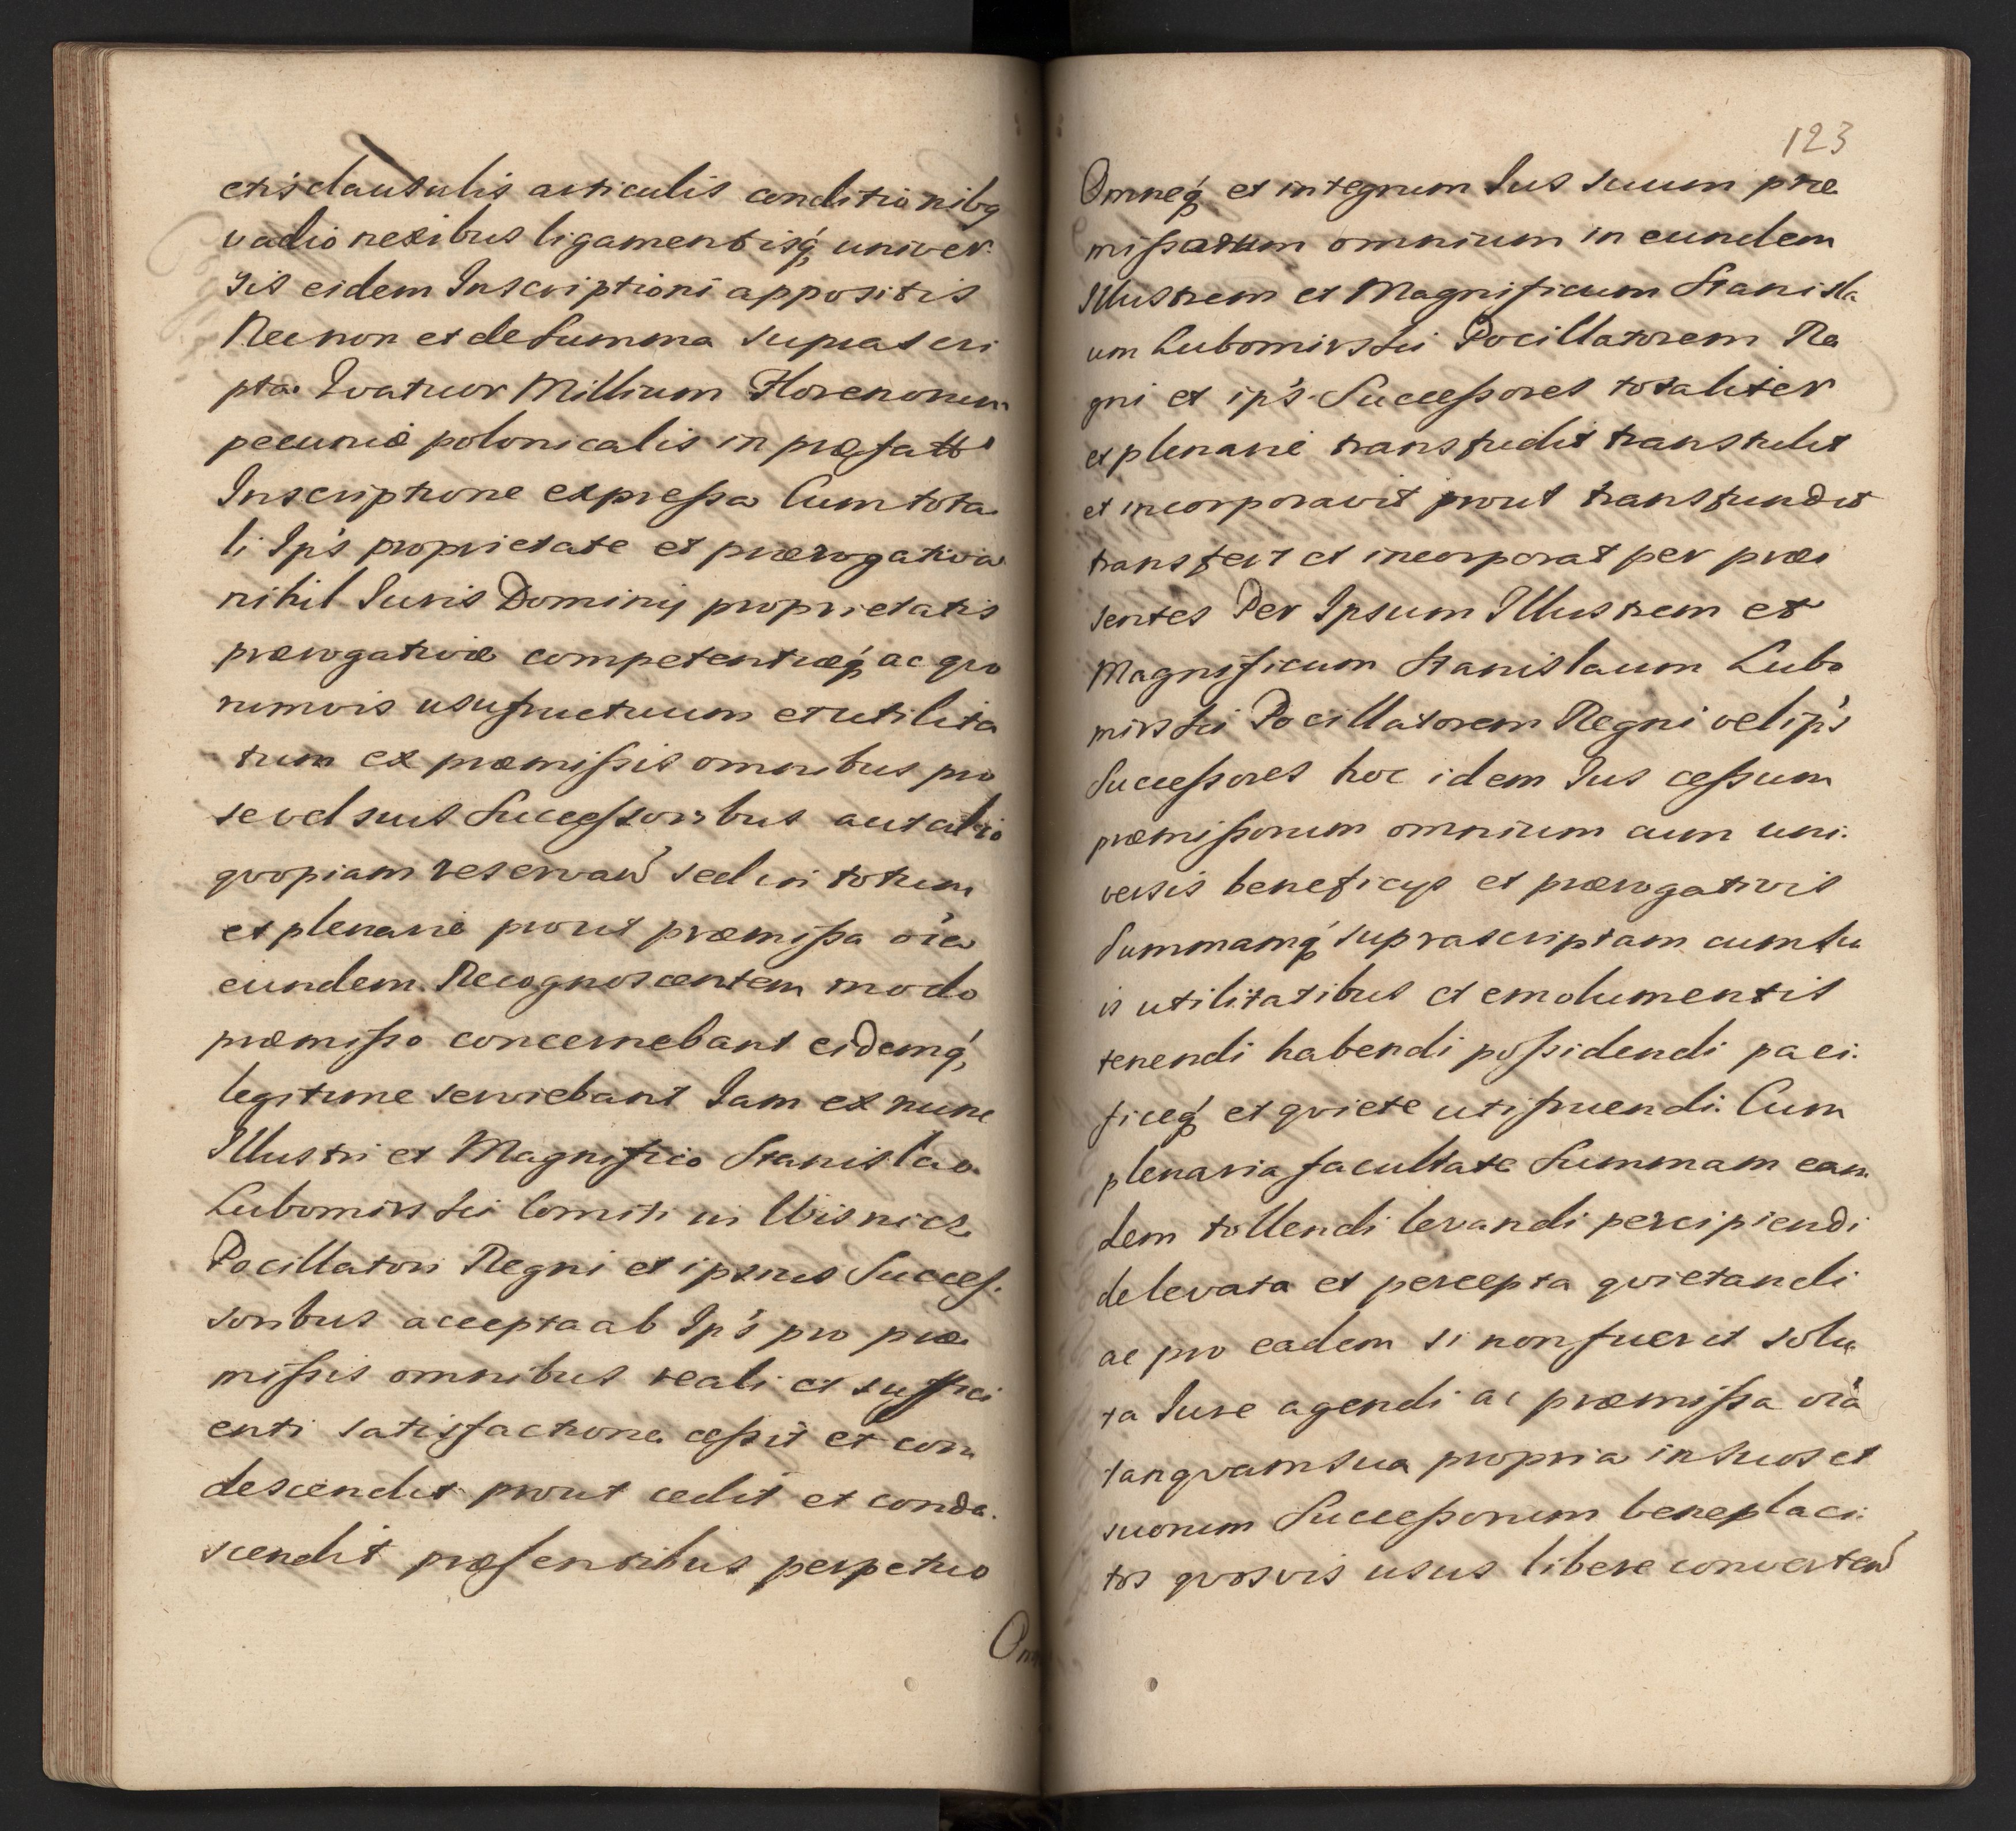 ctis clausulis articulis conditionibq
vadio nexibus ligamentisq́ univer.
sis eidem Inscriptioni appositis
Necnon et de Summa suprascri
pta Qvatuor Millium Florenorum
pecuniæ polonicalis in præfatta
Inscriptione expressa Cum tota
li Ip's proprietate et prærogativa
nihil Iuris Dominij proprietatis
prærogativæ competentiæq́ ac qvo
rumvis usufructuum et utilita
tum ex præmissis omnibus pro
se vel suis Successoribus aut alio
qvopiam reservan̄ sed in totum
et plenarie prout præmissa oi̅a
eundem Recognoscentem modo
præmisso concernebant eidemq́
legitime serviebant Iam ex nunc
Illustri et Magnifico Stanislao
Lubomirski Comiti in Wisnicz
Pocillatori Regni et ipsius Succes.
soribus accepta ab Ip's pro præ
missis omnibus reali et suffici
enti satisfactione cessit et con
descendit prout cedit et conde.
scendit præsentibus perpetuo
Om
123
Omneq́ et integrum Ius suum præ
missorum omnium in eundem
Illustrem et Magnificum Stanisla
um Lubomirski Pocillatorem Re
gni et ip's Successores totaliter
et plenarie transfudit transtulit
et incorporavit prout transfundit
transfert et incorporat per præ
sentes Per Ipsum Illustrem et
Magnificum Stanislaum Lubo
mirski Pocillatorem Regni vel ip's
Successores hoc idem Ius cessum
præmissorum omnium cum uni.
versis beneficijs et prærogativis
Summamq́ suprascriptam cum su
is utilitatibus et emolumentis
tenendi habendi possidendi paci.
ficeq́ et qviete utifruendi. Cum
plenaria facultate Summam ean
dem tollendi levandi percipiendi
de levata et percepta qvietandi
ac pro eadem si non fuerit solu
ta Iure agendi ac præmissa oi̅a
tanqvam sua propria in suos et
suorum Successorum beneplaci.
tos qvosvis usus libere converten̄